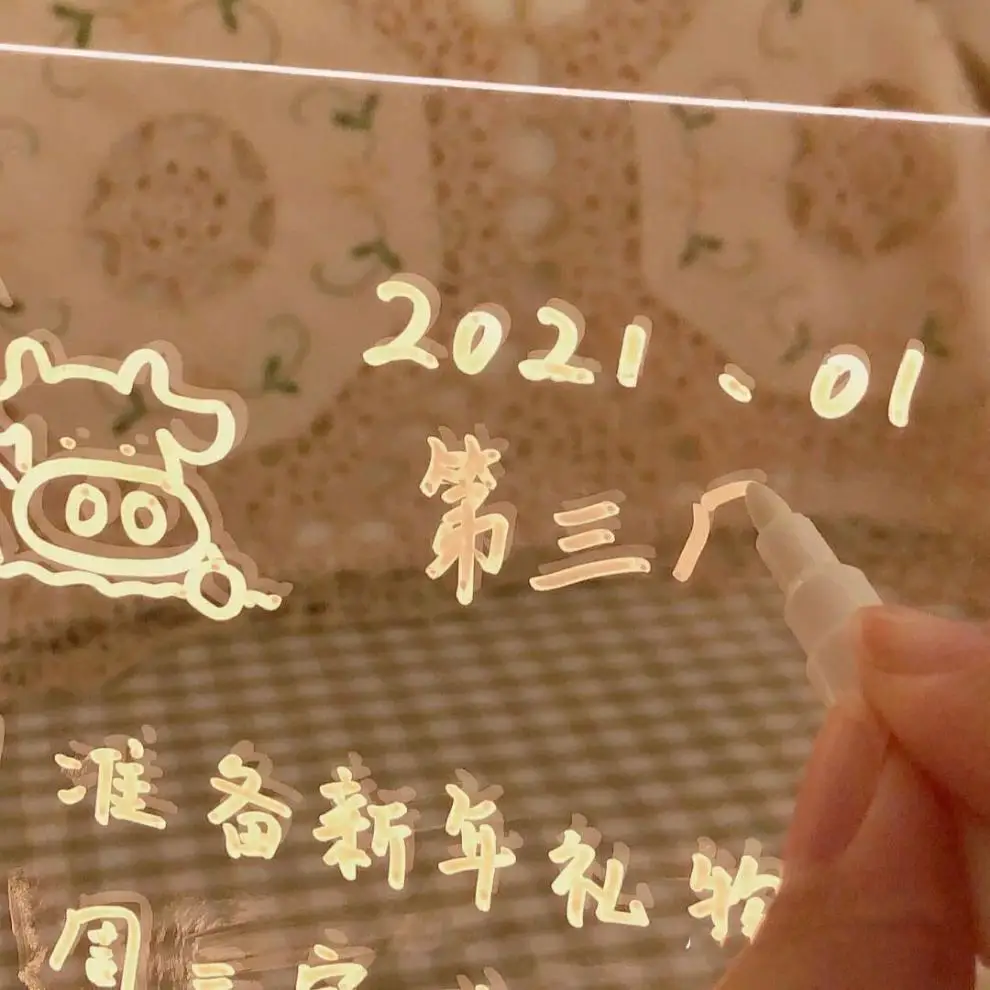 2021、01
第三
准备新年礼物
周三定